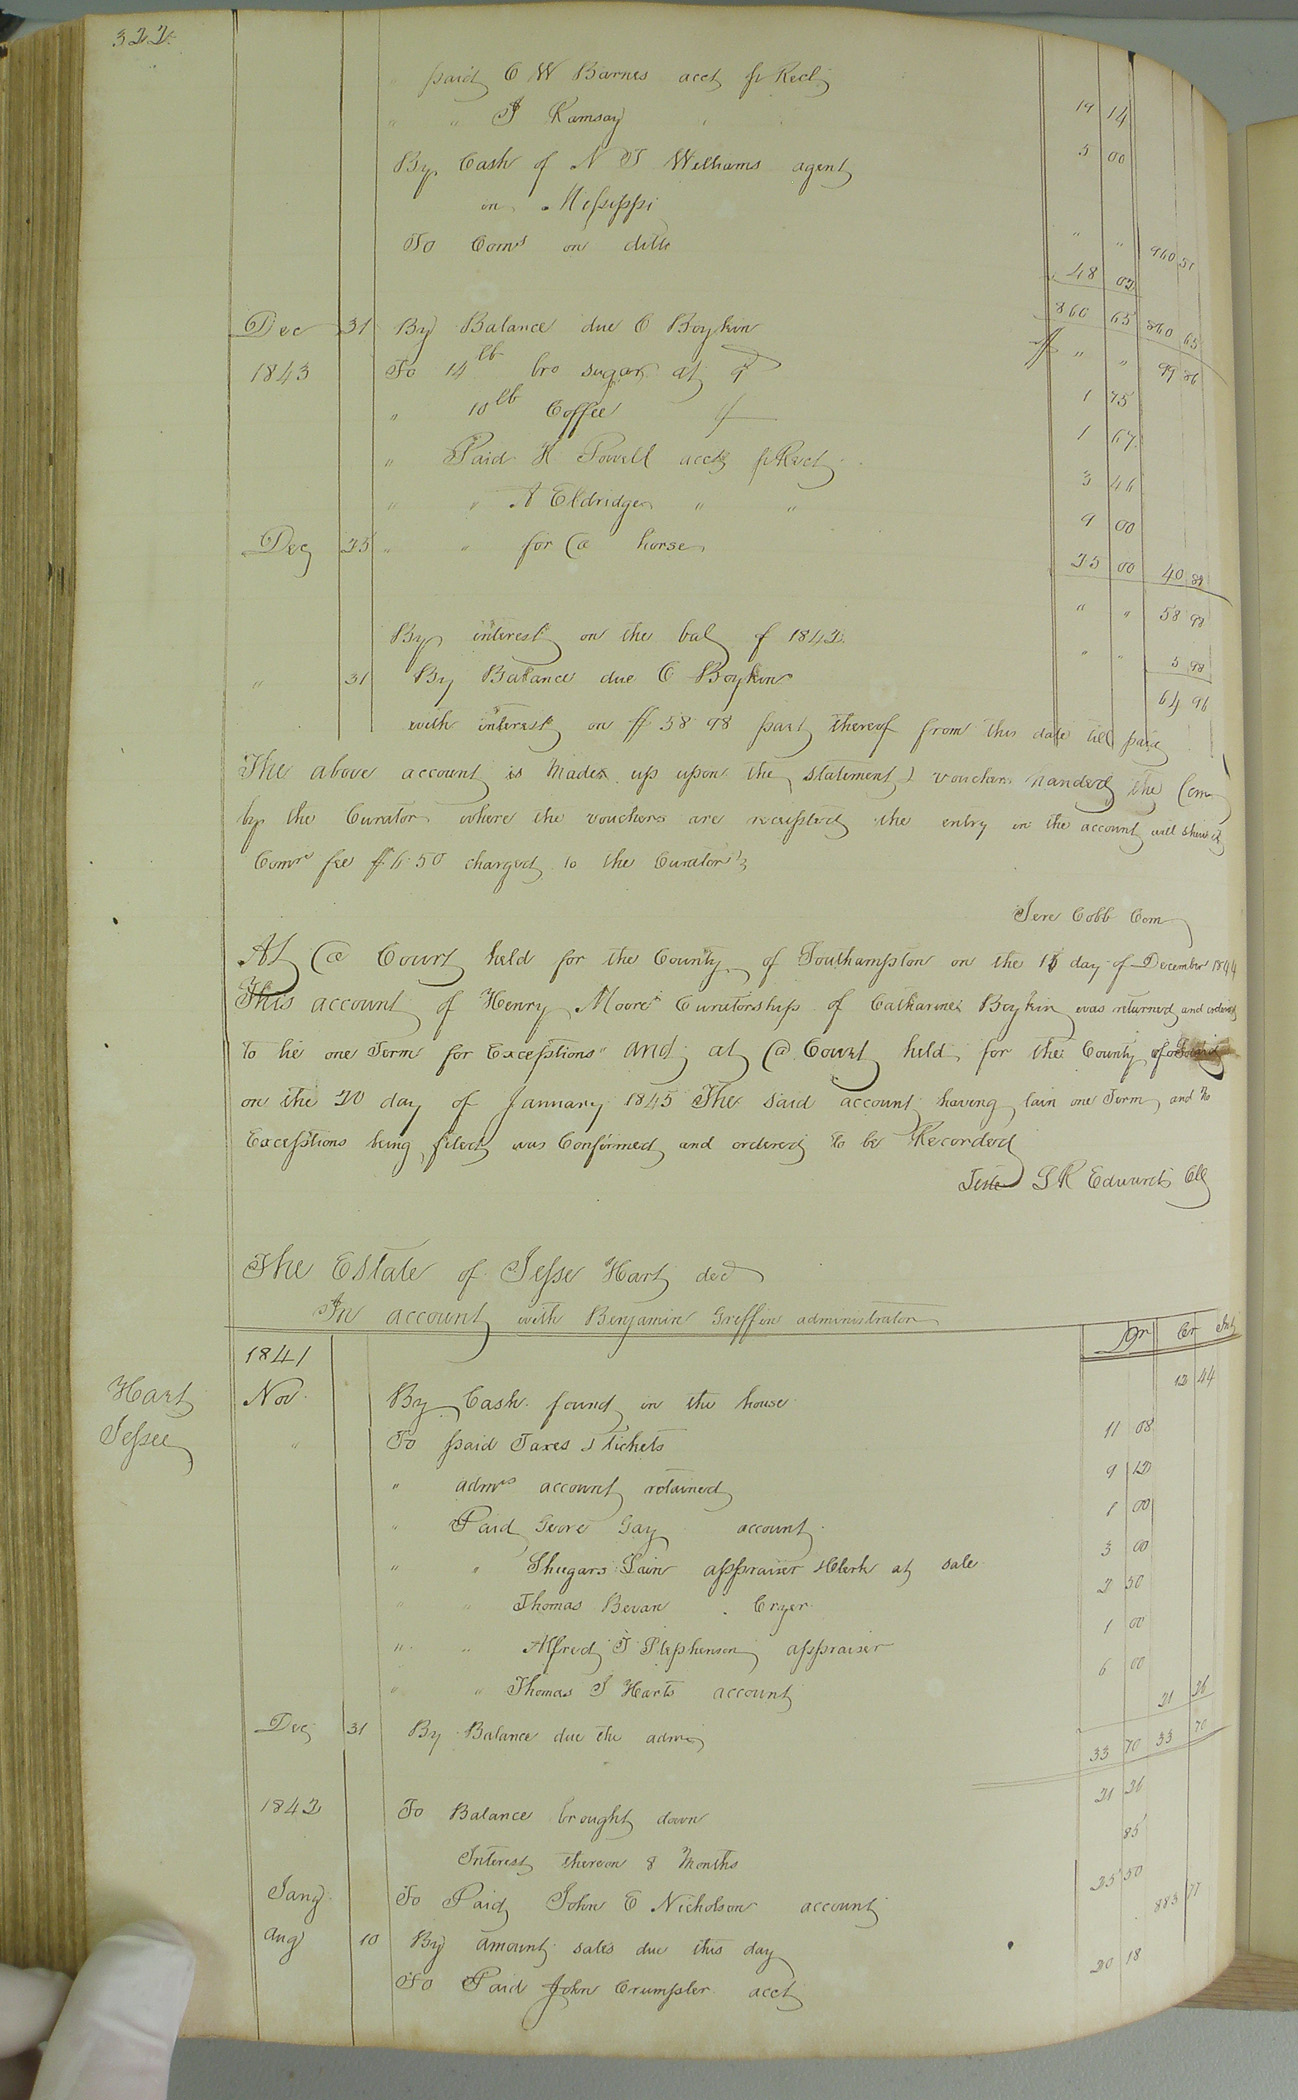 322
" paid C W Barnes acct pr Rect 19 14
" " J Ramsay " " 5 00
By Cash of N T Williams agent
on Missisippi " " 960 51
To Coms on ditto 48 02
860 65 860 65
Dec 31 By Balance due C Boykin $ " " 99 86
1843 To 14 lb bro sugar at 1 75
" 10 lb Coffee 1 67
" Paid H Powell acct pr Rect 3 46
" " A Eldridge " " 9 00
Dec 25 " " for a horse 25 00 40 88
" " 58 98
By interest on the bal of 1842 " " 5 98
" 31 By Balance due C Boykin 64 96
with interest on $58 98 part thereof from this date till paid
The above account is made up upon the statement & vouchers handed the Com
by the Curator where the vouchers are receipted the entry in the account will shew it
Comrs fee $4.50 charged to the Curator
Jere Cobb Com
At a Court held for the County of Southampton on the 16 day of December 1844
This account of Henry Moores Curatorship of Catharine Boykin was returned and ordered
to lie one Term for Exceptions and at a Court held for the County
on the 20 day of January 1845 The said account having lain one Term and No
Exceptions being filed was Confirmed and ordered to be Recorded
Teste L R Edwards Clk
The Estate of Jesse Hart decd
In account with Benjamin Griffin administrator
Dr Cr
1841
Hart Jessee
Nov By Cash found in the house 12 44
" To paid Taxes & tickets 11 08
" admrs account retained 9 12
" Paid George Gay account 1 00
" " Lain appraiser & Clerk at sale 3 00
" " Thomas Bevan Cryer 2 50
" " Alfred J Stephenson appraiser 1 00
" " Thomas J Harts account 6 00
Dec 31 By Balance due the admr 21 26
33 70 33 70
1842 To Balance brought down 21 26
Interest thereon 8 Months 85
Jany To Paid John E Nicholson account 25 50
Aug 10 By amount sales due this day 883 77
To Paid John Crumpler acct 20 18